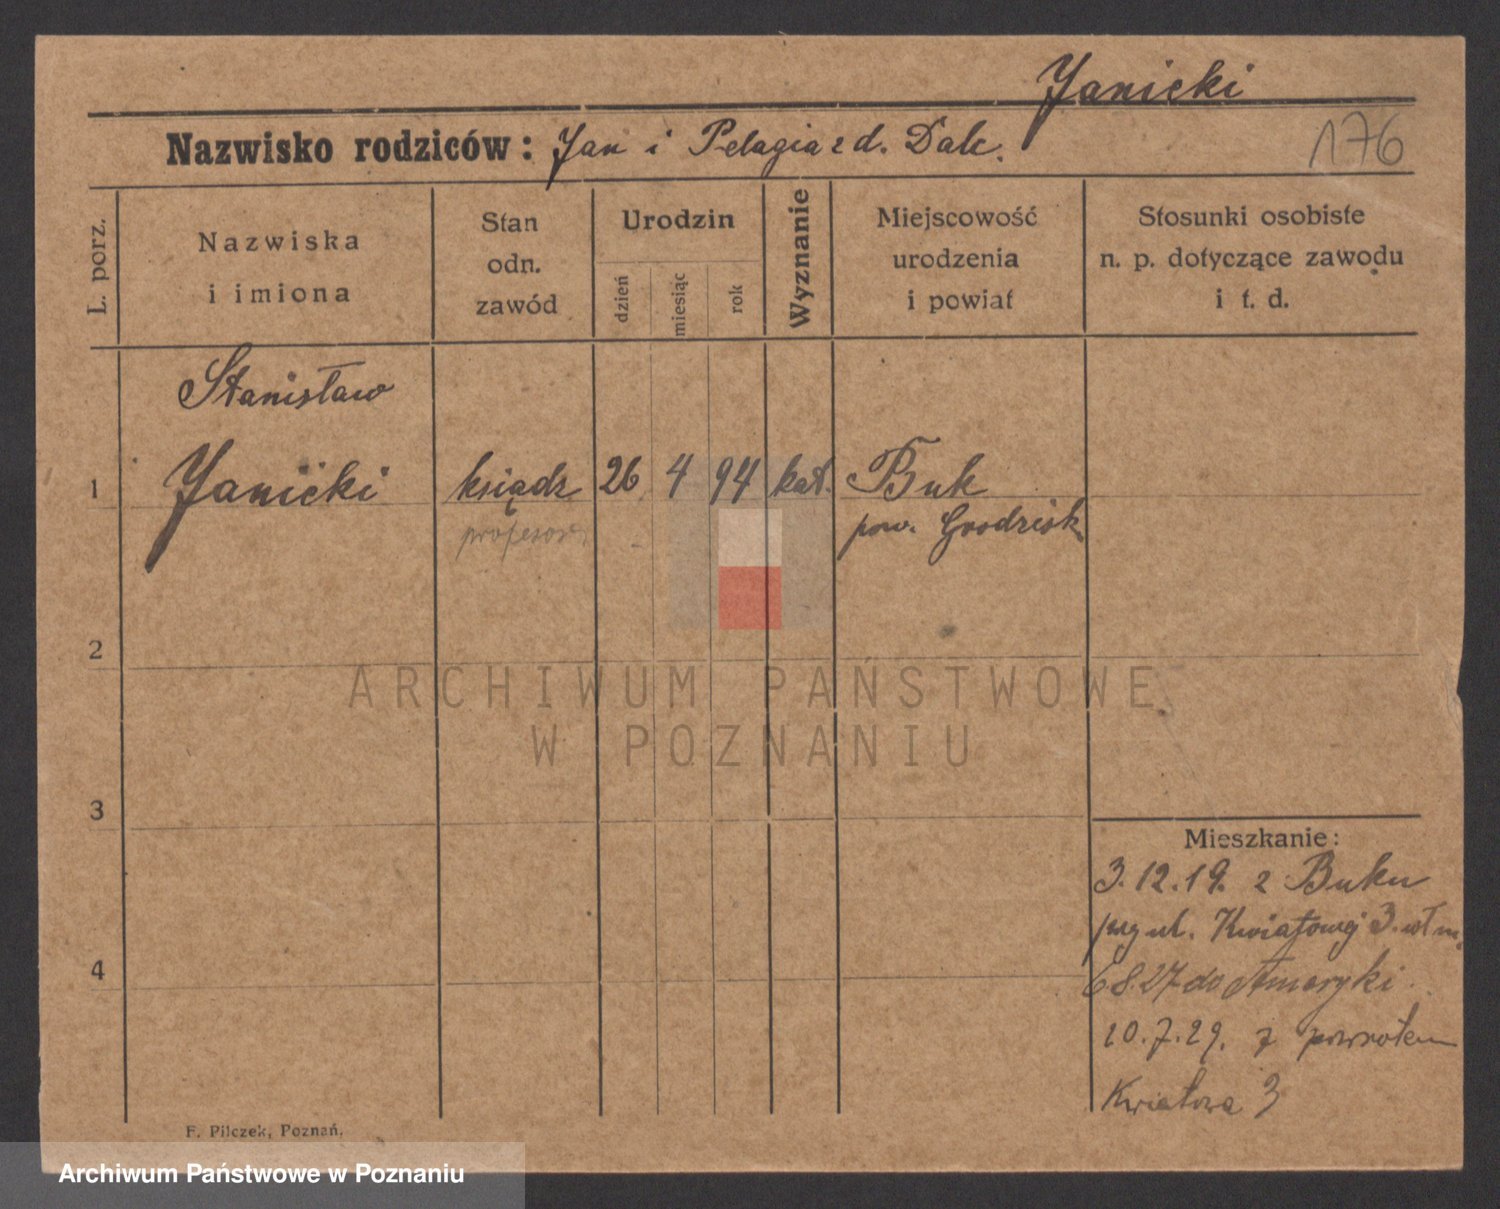 Janicki
Nazwisko rodziców: Jan i Pelagia z d. Dalc.
176
L. porz.
Nazwiska
i imiona
Stan
odn.
zawód
Urodzin
dzień
miesiąc
rok
Wyznanie
Miejscowość
urodzenia
i powiat
Stosunki osobiste
n. p. dotyczące zawodu
i t. d.
Stanisław
1 Janicki ksiądz 26 4 94 kat. Buk
profesor pow. Grodzisk
2
ARCHIWUM PAŃSTWOWE
W POZNANIU
3
Mieszkanie:
3.12.19. z Buku
ul. Kwiatowej 3.
6 8.27 do Ameryki
20.7.29. z powrotem
Kwiatowa 3
4
F. Pilczek, Poznań.
Archiwum Państwowe w Poznaniu